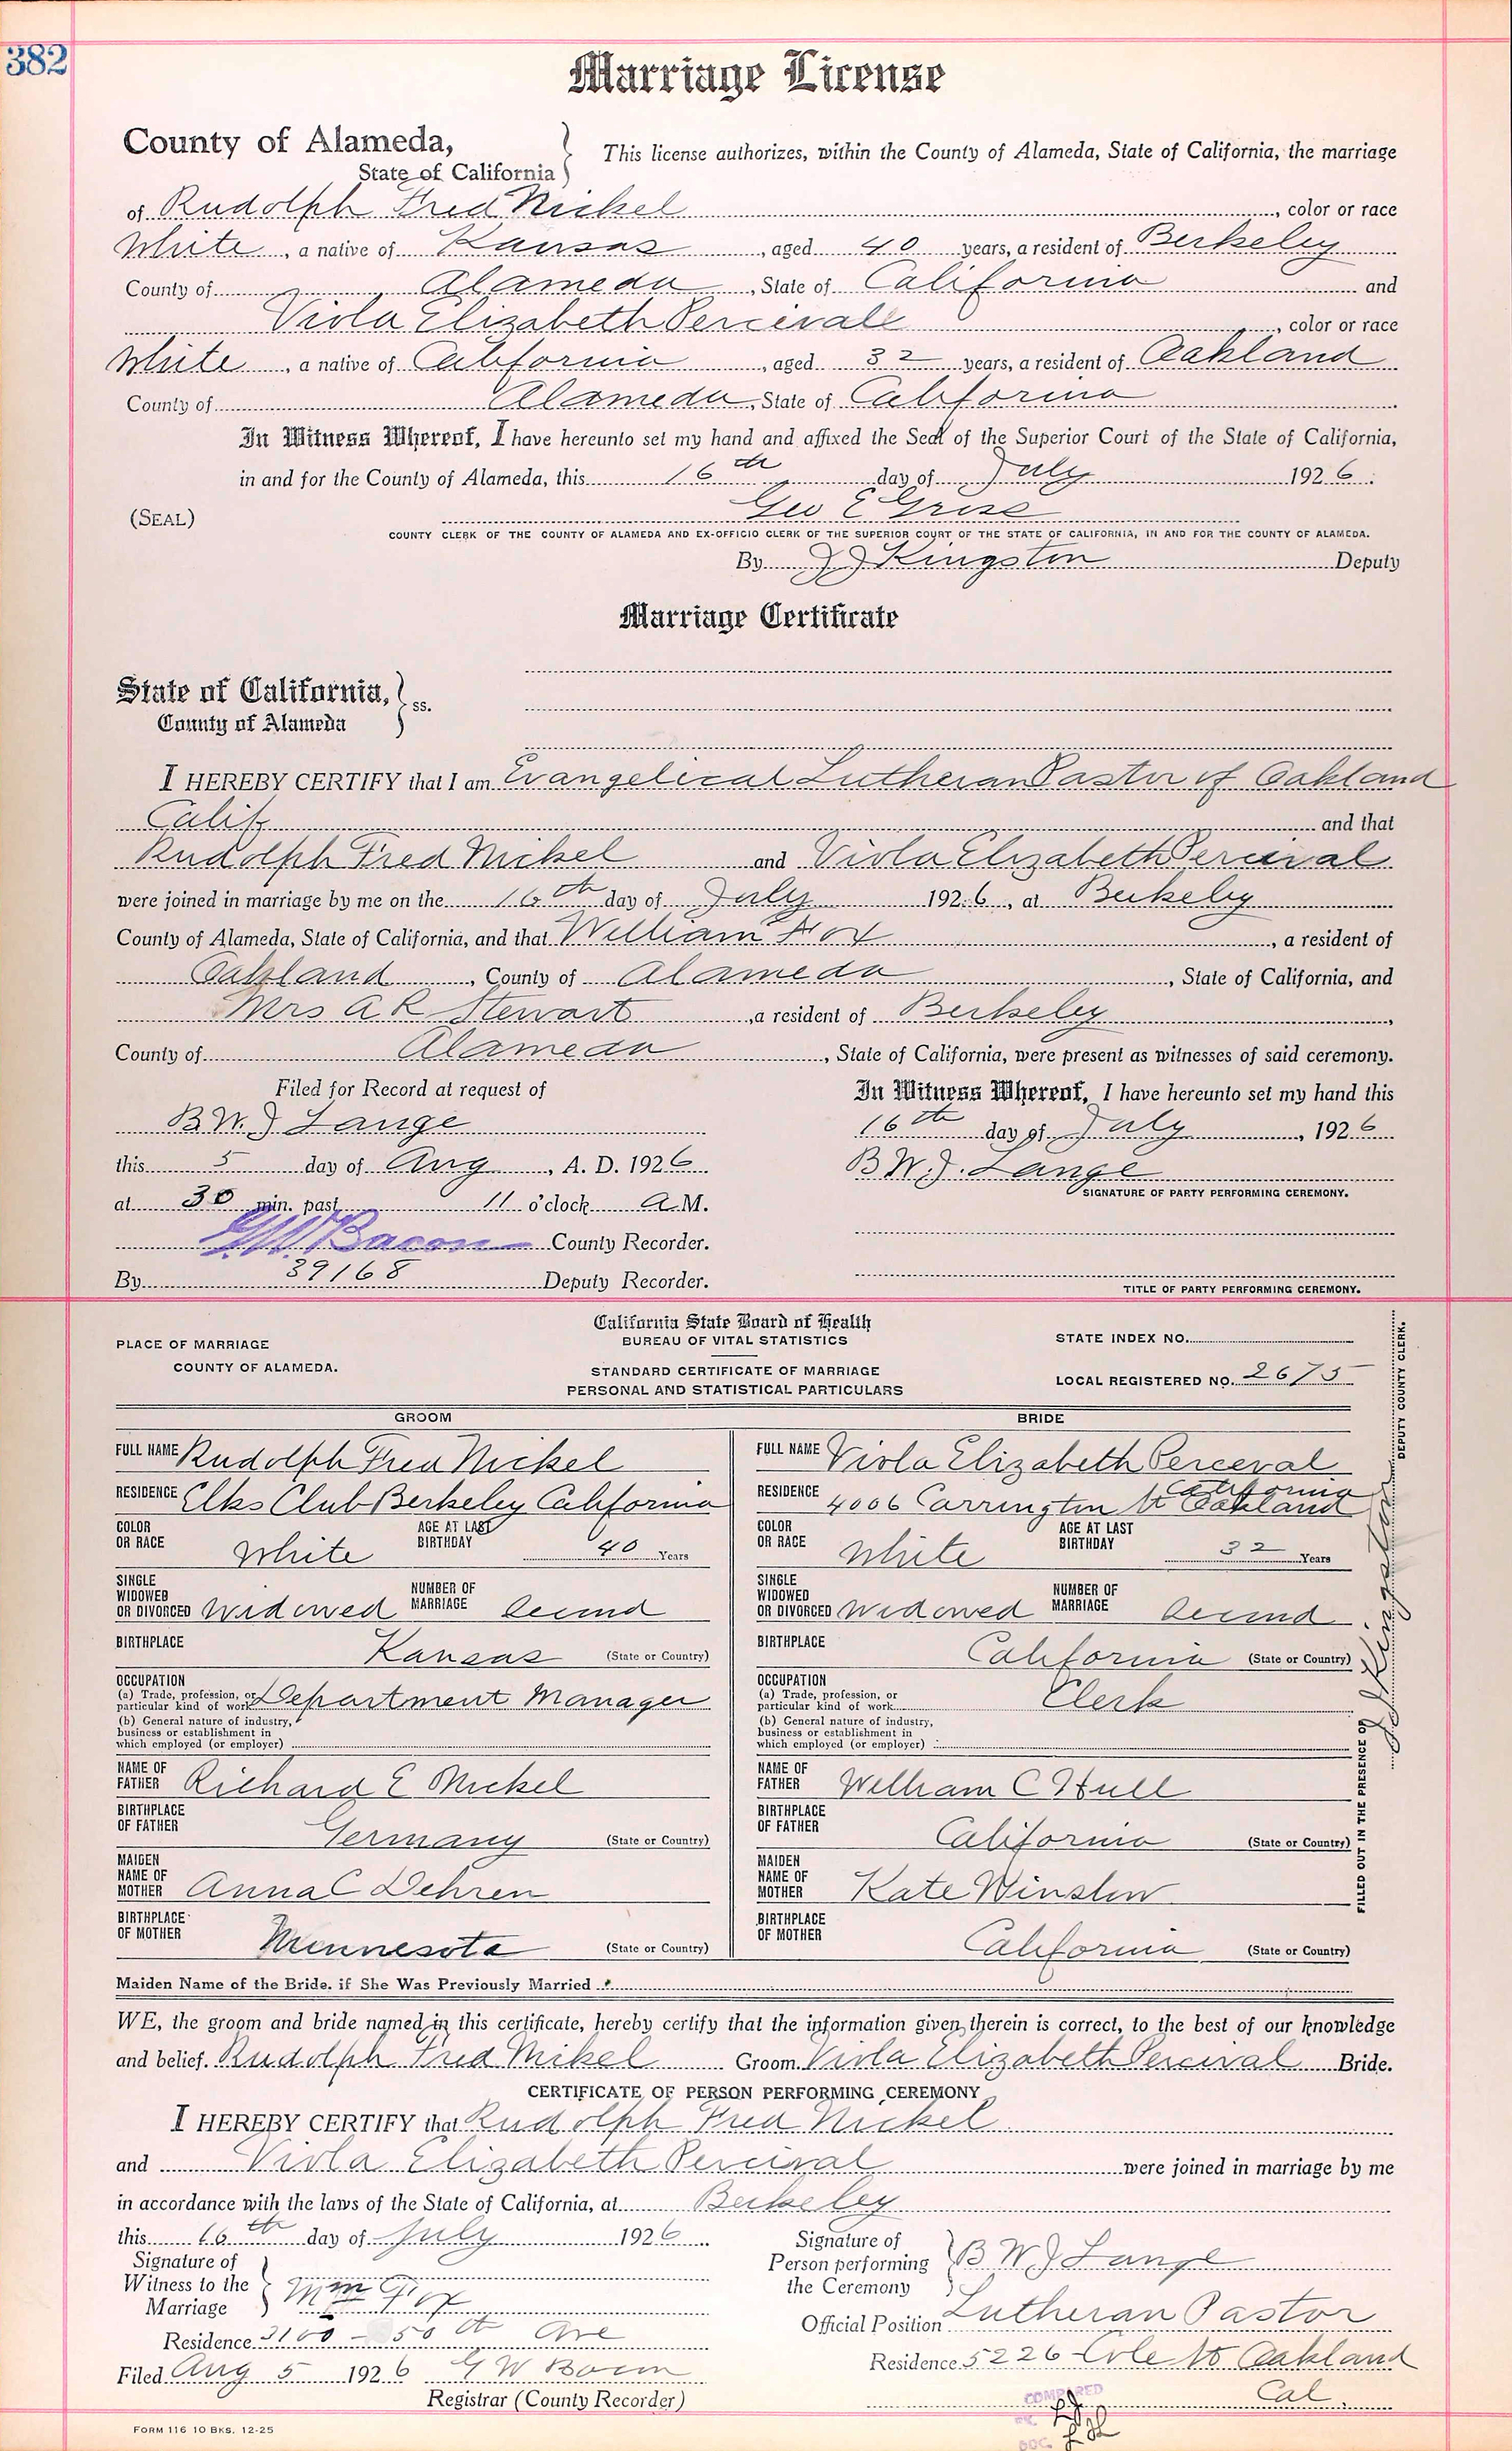 382
Marriage License
County of Alameda,
State of California
This license authorizes, within the County of Alameda, State of California, the marriage
of Rudolph Fred Nickel, color or race
White, a native of Kansas, aged 40 years, a resident of Berkeley
County of Alameda, State of California and
Viola Elizabeth Percivall, color or race
White, a native of California, aged 32 years, a resident of Oakland
County of Alameda, State of California
In Witness Whereof, I have hereunto set my hand and affixed the Seal of the Superior Court of the State of California,
in and for the County of Alameda, this 16th day of July 1926.
(SEAL) Geo E Gross
COUNTY CLERK OF THE COUNTY OF ALAMEDA AND EX-OFFICIO CLERK OF THE SUPERIOR COURT OF THE STATE OF CALIFORNIA, IN AND FOR THE COUNTY OF ALAMEDA.
By J J Kingston Deputy
Marriage Certificate
State of California,
County of Alameda
ss.
I HEREBY CERTIFY that I am Evangelical Lutheran Pastor of Oakland
Calif and that
Rudolph Fred Nickel and Viola Elizabeth Percival
were joined in marriage by me on the 16th day of July 1926, at Berkeley
County of Alameda, State of California, and that William Fox, a resident of
Oakland, County of Alameda, State of California, and
Mrs A R Stewart, a resident of Berkeley,
County of Alameda, State of California, were present as witnesses of said ceremony.
Filed for Record at request of
B W. J Lange
this 5 day of Aug, A. D. 1926
at 30 min. past 11 o'clock A.M.
G.W. Bacon County Recorder.
By 39168 Deputy Recorder.
In Witness Whereof, I have hereunto set my hand this
16th day of July, 1926
B W. J. Lange
SIGNATURE OF PARTY PERFORMING CEREMONY.
TITLE OF PARTY PERFORMING CEREMONY.
PLACE OF MARRIAGE
COUNTY OF ALAMEDA.
California State Board of Health
BUREAU OF VITAL STATISTICS
STANDARD CERTIFICATE OF MARRIAGE
PERSONAL AND STATISTICAL PARTICULARS
STATE INDEX NO.
LOCAL REGISTERED NO. 2675
GROOM
FULL NAME Rudolph Fred Nickel
RESIDENCE Elks Club Berkeley California
COLOR OR RACE White AGE AT LAST BIRTHDAY 40 Years
SINGLE WIDOWED OR DIVORCED Widowed NUMBER OF MARRIAGE Second
BIRTHPLACE Kansas (State or Country)
OCCUPATION
(a) Trade, profession, or particular kind of work Department Manager
(b) General nature of industry, business or establishment in which employed (or employer)
NAME OF FATHER Richard E Nickel
BIRTHPLACE OF FATHER Germany (State or Country)
MAIDEN NAME OF MOTHER Anna C Dehren
BIRTHPLACE OF MOTHER Minnesota (State or Country)
BRIDE
FULL NAME Viola Elizabeth Perceval
RESIDENCE 4006 Carrington St Oakland California
COLOR OR RACE White AGE AT LAST BIRTHDAY 32 Years
SINGLE WIDOWED OR DIVORCED Widowed NUMBER OF MARRIAGE Second
BIRTHPLACE California (State or Country)
OCCUPATION
(a) Trade, profession, or particular kind of work Clerk
(b) General nature of industry, business or establishment in which employed (or employer)
NAME OF FATHER William C Hull
BIRTHPLACE OF FATHER California (State or Country)
MAIDEN NAME OF MOTHER Kate Winslow
BIRTHPLACE OF MOTHER California (State or Country)
FILLED OUT IN THE PRESENCE OF J J Kingston DEPUTY COUNTY CLERK.
Maiden Name of the Bride, if She Was Previously Married
WE, the groom and bride named in this certificate, hereby certify that the information given therein is correct, to the best of our knowledge
and belief. Rudolph Fred Nikel Groom. Viola Elizabeth Percival Bride.
CERTIFICATE OF PERSON PERFORMING CEREMONY
I HEREBY CERTIFY that Rudolph Fred Nickel
and Viola Elizabeth Percival were joined in marriage by me
in accordance with the laws of the State of California, at Berkeley
this 16th day of July 1926
Signature of Witness to the Marriage Wm Fox
Residence 3100 - 50th Ave
Filed Aug 5 1926 G W Bacon
Registrar (County Recorder)
Signature of Person performing the Ceremony B W J Lange
Official Position Lutheran Pastor
Residence 5226 Cole St Oakland
Cal.
COMPARED
DOC.
FORM 116 10 BKS. 12-25